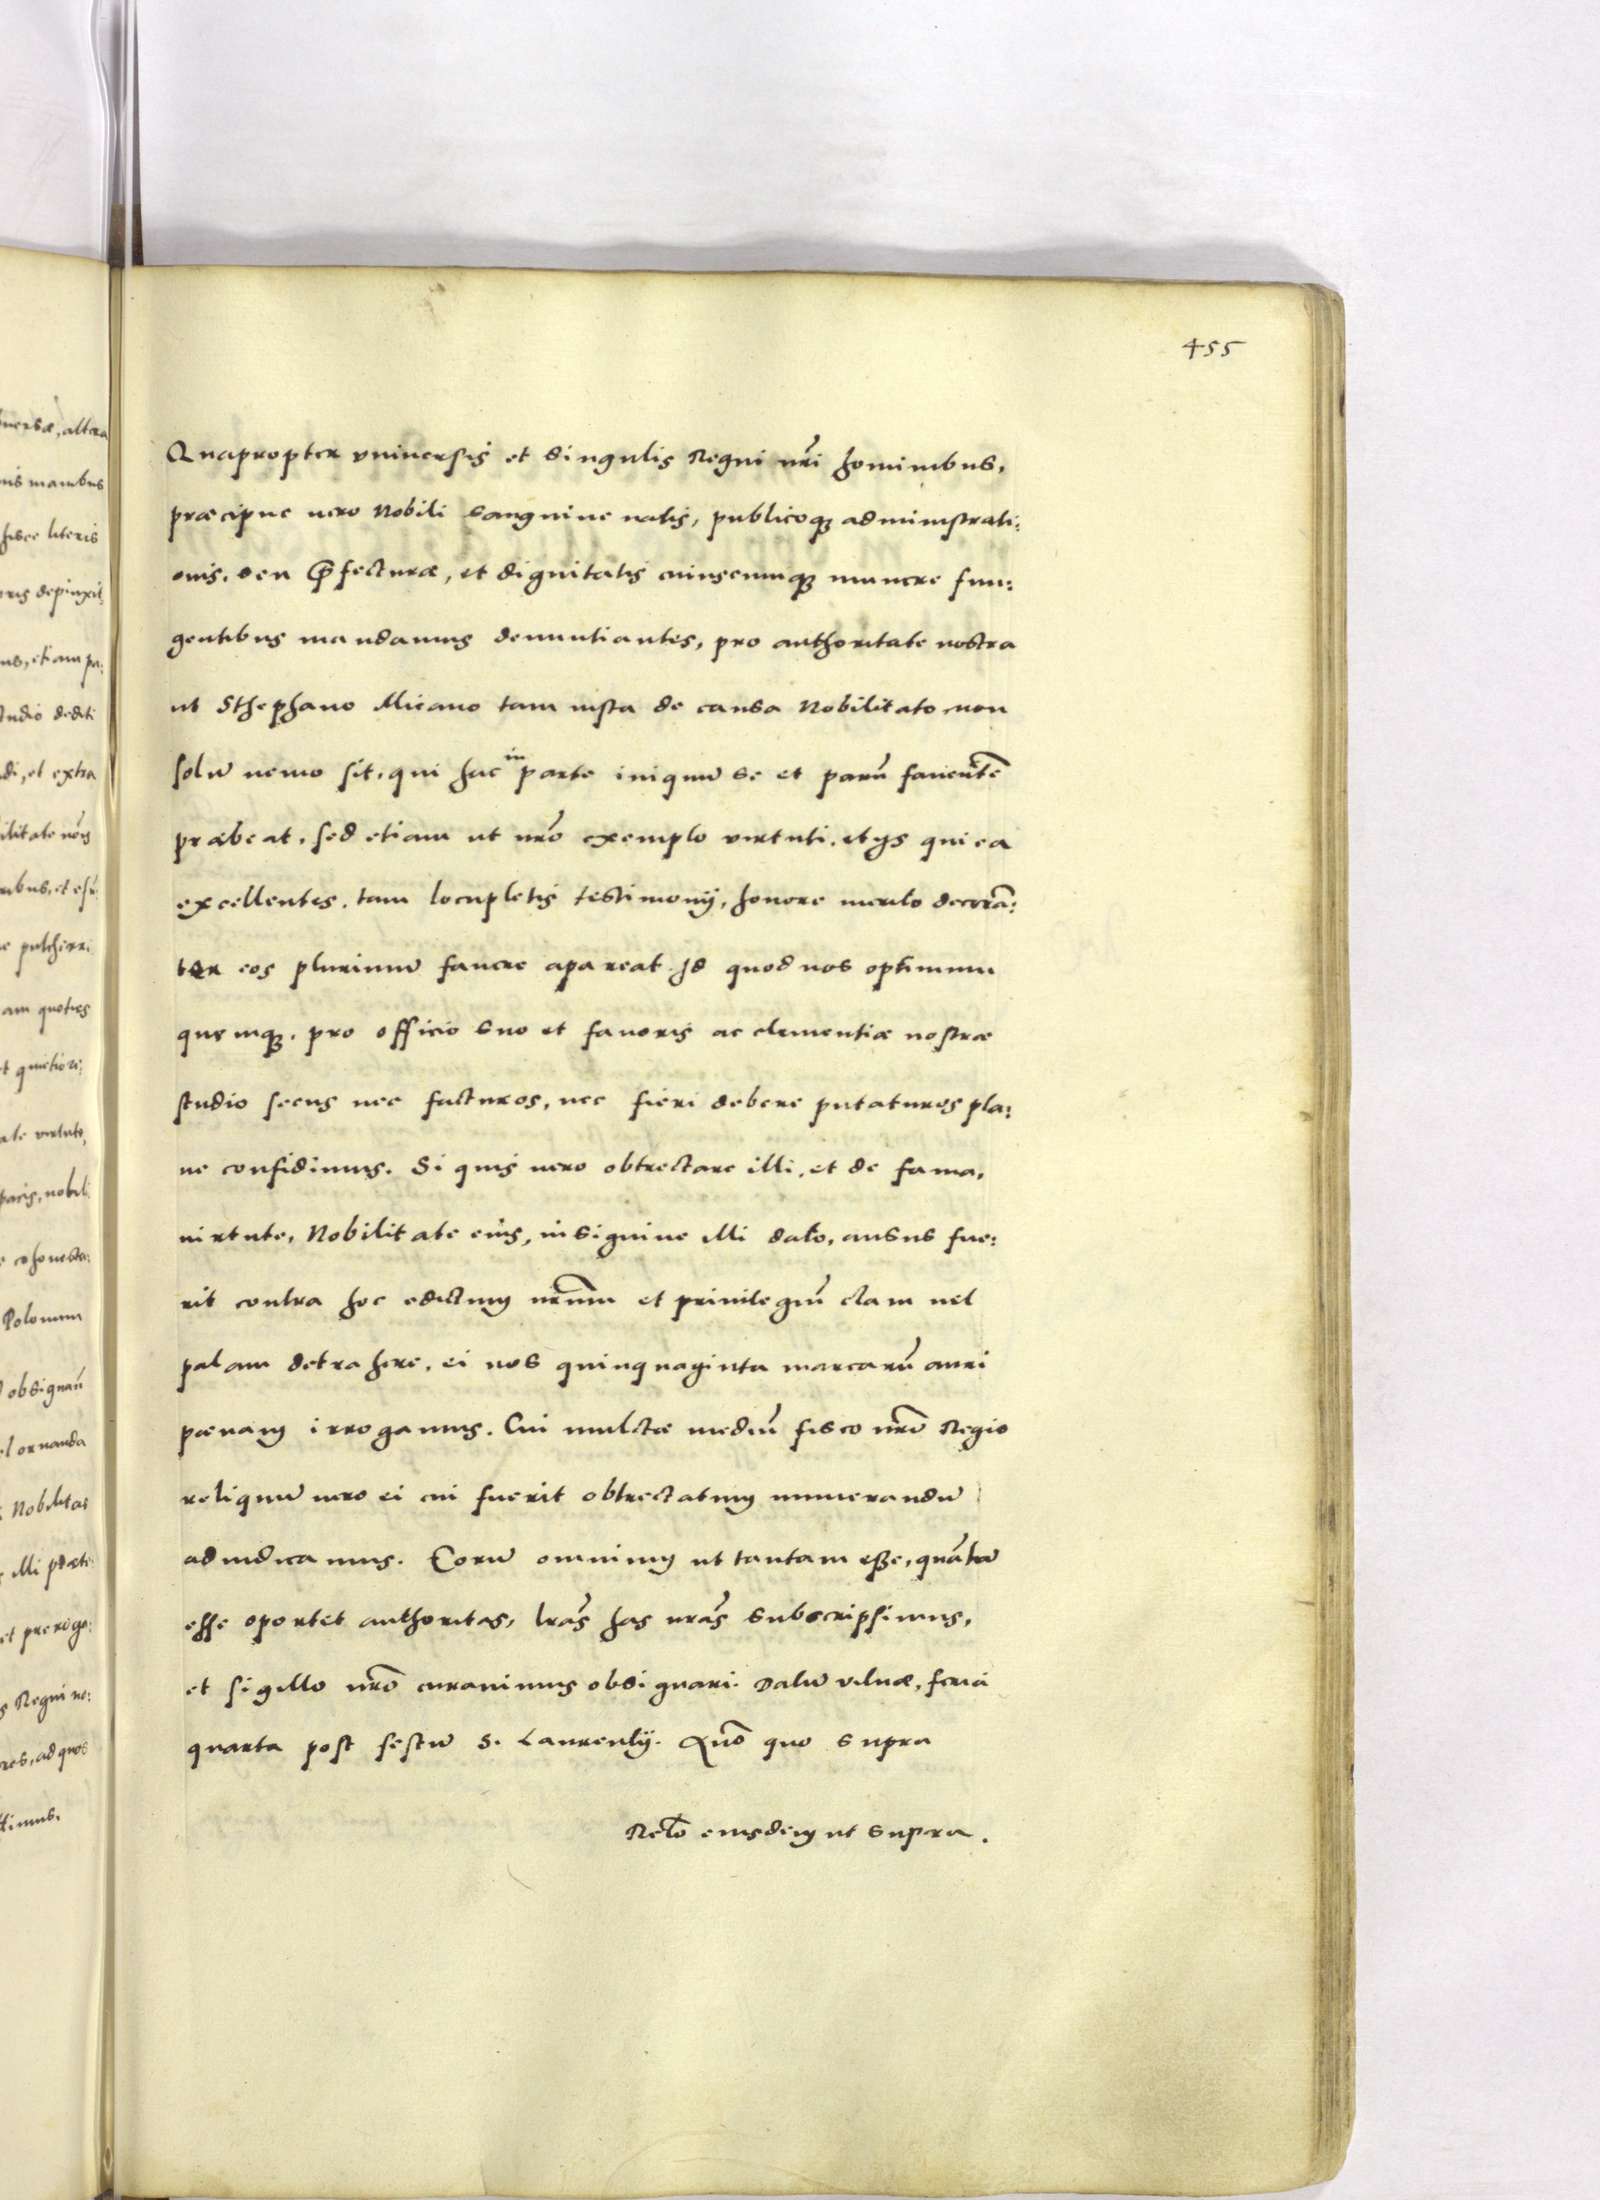 455
Quapropter vniuersis et singulis Regni nr̃i hominibus,
præcipue uero Nobili sanguine natis, publicoq; administrati:
onis, seu P̃fecturæ, et dignitatis cuiuscunq; munere fun:
gentibus mandamus denuntiantes, pro authoritate nostra
ut Sthephano Micano tam iusta de causa Nobilitato non
solũ nemo sit, qui hac in parte iniquũ se et parũ fauentẽ
præbeat, sed etiam ut nr̃o exemplo virtuti, et ijs qui ea
excellentes, tam locupletis testimonij, honore merito decorã:
tur eos plurimũ fauere apareat. Id quod nos optimum
quemq; pro officio suo et fauoris ac clementiæ nostræ
studio secus nec facturos, nec fieri debere putaturos pla:
ne confidimus. Si quis uero obtrectare illi, et de fama,
uirtute, Nobilitate eius, insigniue illi dato, ausus fue:
rit contra hoc edictum nr̃um et priuilegiũ clam uel
palam detrahere, ei nos quinquaginta marcarũ auri
pœnam irrogamus. Cui mulctæ mediũ fisco nr̃o Regio
reliquũ uero ei cui fuerit obtrectatum numerandũ
adiudicamus. Eorũ omnium ut tantam esse, quãtã
esse oportet authoritas, lr̃as has nr̃as subscripsimus,
et sigillo nr̃o curauimus obsignari. Datũ vilnæ, feria
quarta post festũ S. Laurentij. Añõ quo supra
Relõ eiusdem ut supra.
nis manibus
hisce literis
studio dediti
di, et extra
am quoties
Polonum
el ornanda
Nobilitas